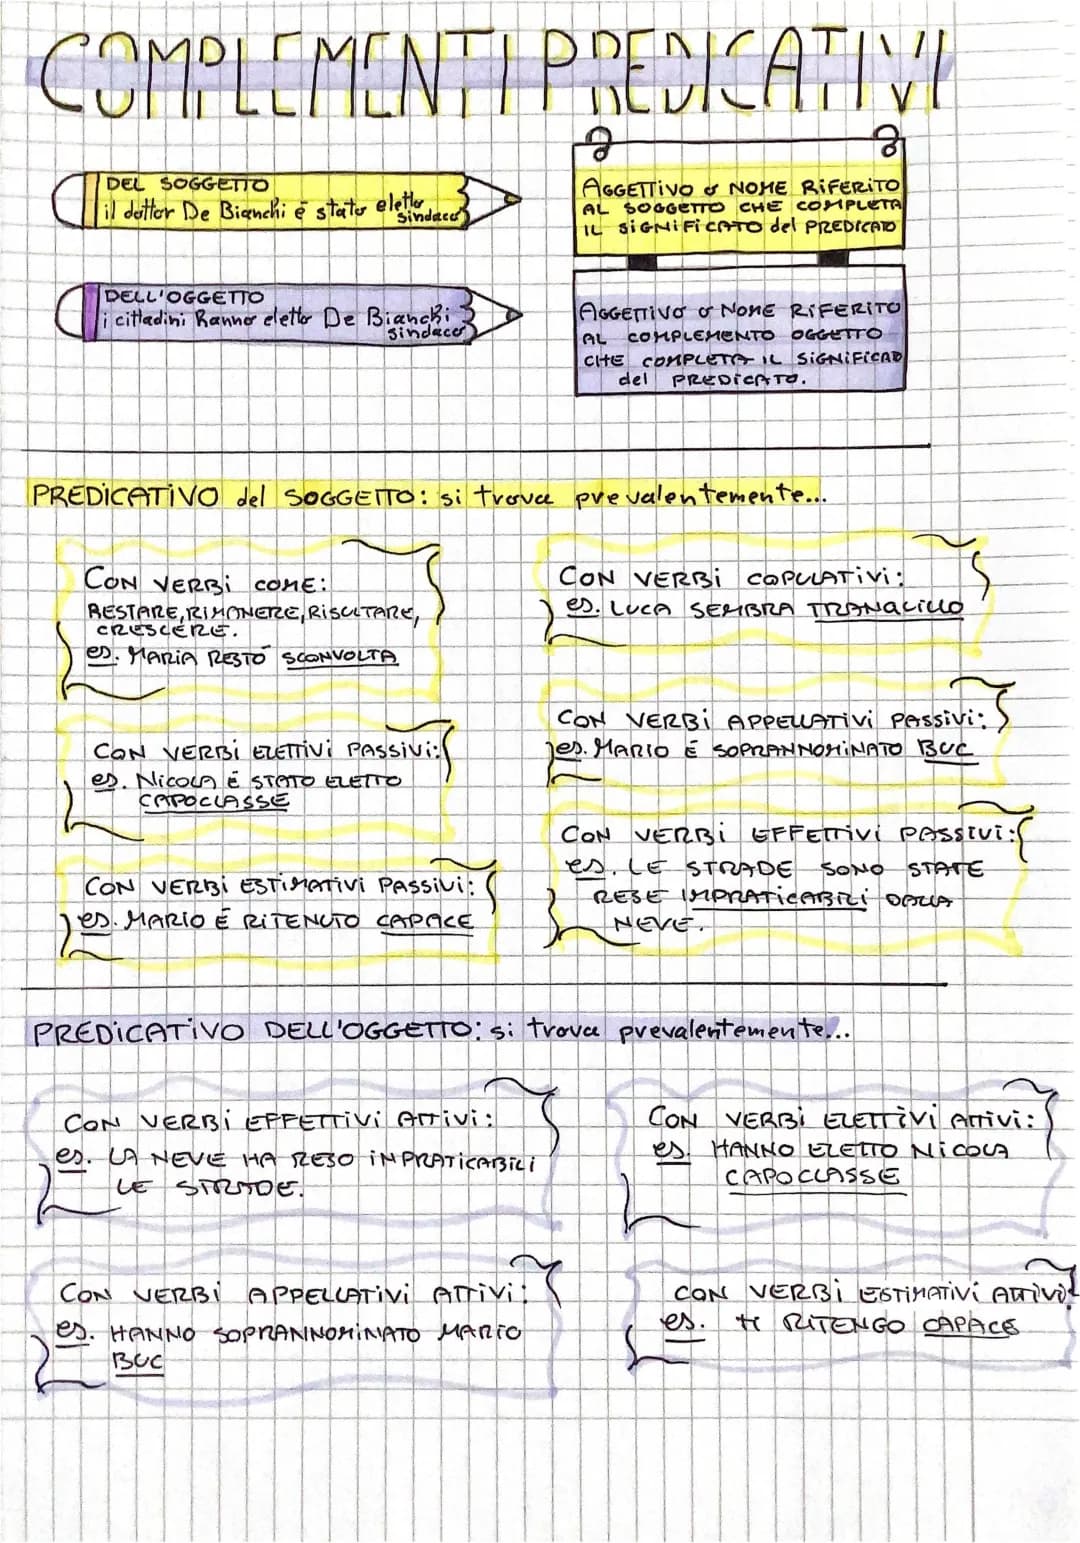 COMPLEMENTI PREDICATIVI
DEL SOGGETTO
il dottor De Bianchi è stato eletto
sindaco
AGGETTIVO o NOME RIFERITO
AL SOGGETTO CHE COMPLETA
IL SIGNIFICATO del PREDICATO
DELL'OGGETTO
i cittadini hanno eletto De Bianchi
sindaco
AGGETTIVO o NOME RIFERITO
AL COMPLEMENTO OGGETTO
CHE COMPLETA IL SIGNIFICATO
del PREDICATO.
PREDICATIVO del SOGGETTO: si trova prevalentemente...
CON VERBI COME:
RESTARE, RIMANERE, RISULTARE,
CRESCERE.
es. MARIA RESTÒ SCONVOLTA
CON VERBI COPULATIVI:
es. LUCA SEMBRA TRANQUILLO
CON VERBI ELETTIVI PASSIVI:
es. NICOLA È STATO ELETTO
CAPOCLASSE
CON VERBI APPELLATIVI PASSIVI:
es. MARIO È SOPRANNOMINATO BUC
CON VERBI ESTIMATIVI PASSIVI:
es. MARIO È RITENUTO CAPACE
CON VERBI EFFETTIVI PASSIVI:
es. LE STRADE SONO STATE
RESE IMPRATICABILI DALLA
NEVE.
PREDICATIVO DELL'OGGETTO: si trova prevalentemente...
CON VERBI EFFETTIVI ATTIVI:
es. LA NEVE HA RESO INPRATICABILI
LE STRADE.
CON VERBI ELETTIVI ATTIVI:
es. HANNO ELETTO NICOLA
CAPOCLASSE
CON VERBI APPELLATIVI ATTIVI:
es. HANNO SOPRANNOMINATO MARIO
BUC
CON VERBI ESTIMATIVI ATTIVI:
es. ti RITENGO CAPACE